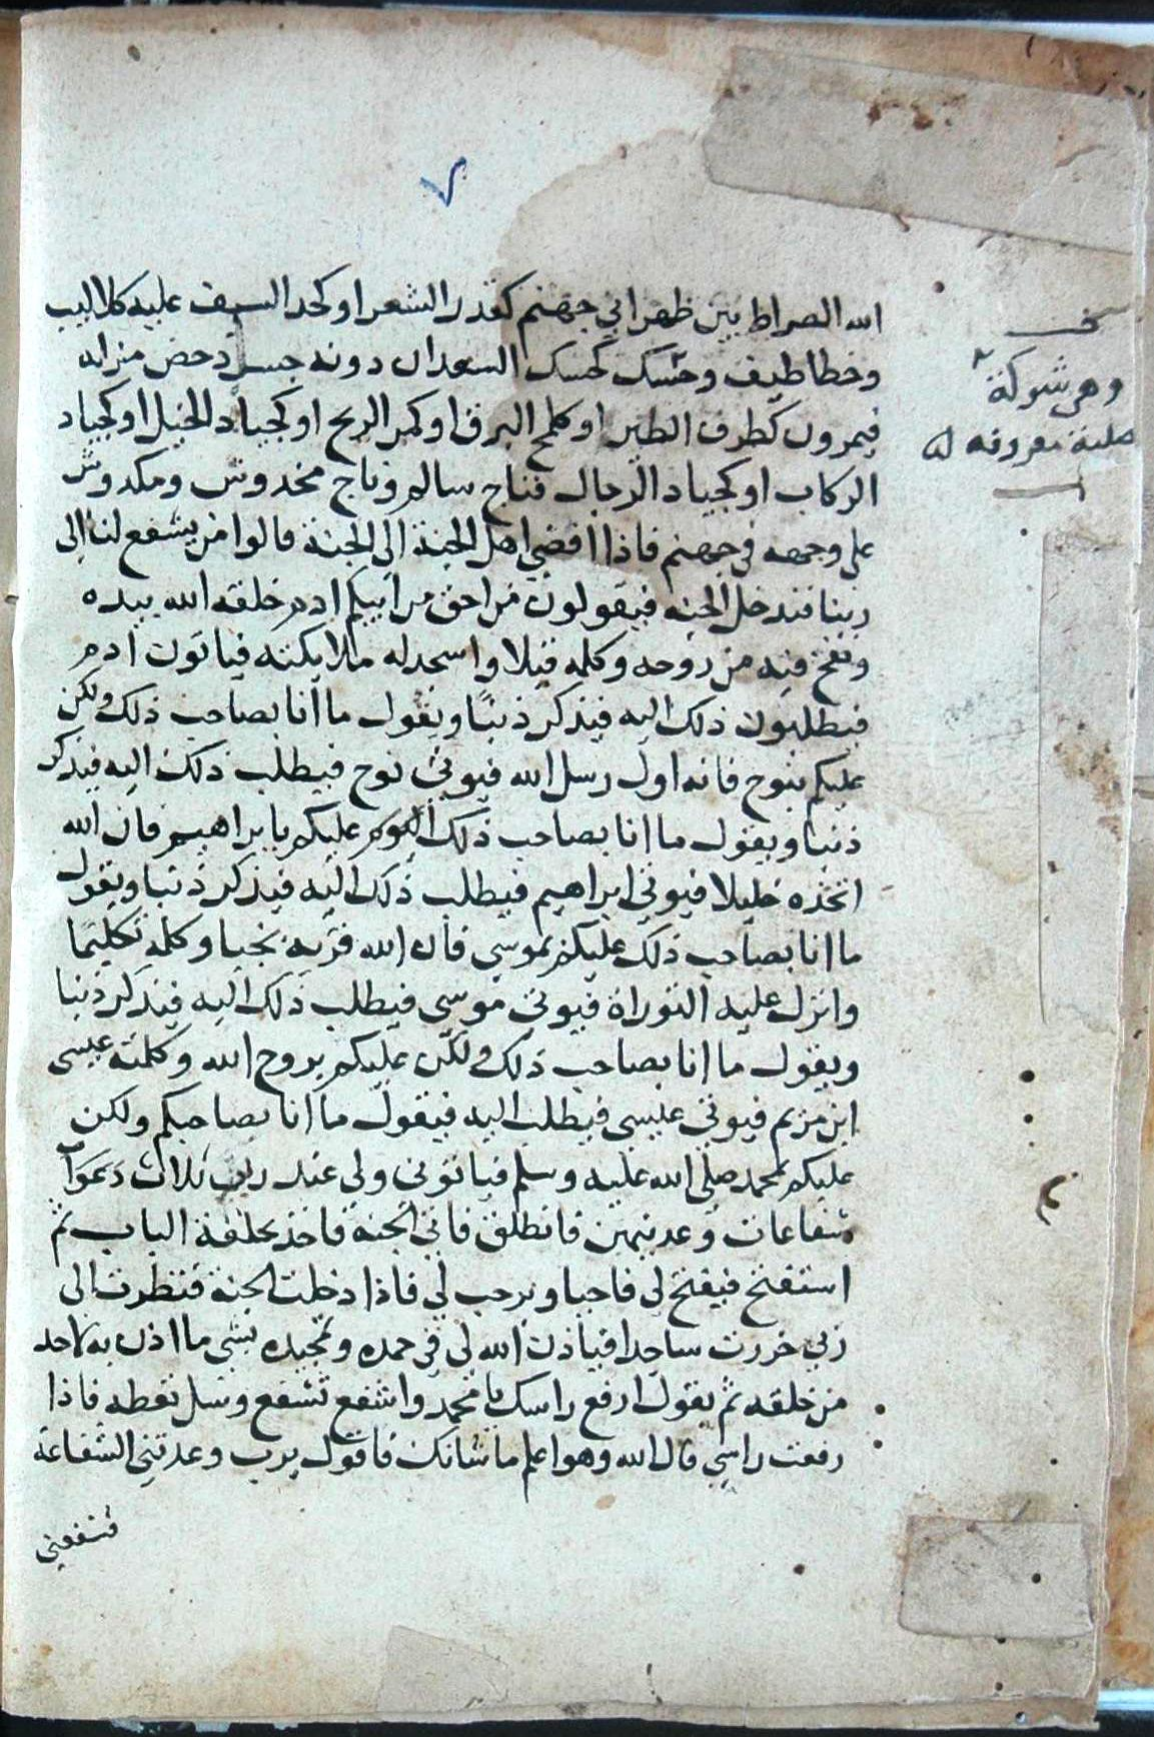 الله الصراط بين ظهراني جهنم كقدر الشعر او كحد السيف عليه كلاليب
وخطاطيف وحسك كحسك السعدان دونه جسر دحض مزله
فيمرون كطرف الطير او كلمح البرق او كمر الريح او كجياد الخيل او كجياد
الركاب او كجياد الرجال فناج سالم وناج مخدوش ومكدوش
على وجهه في جهنم فاذا افضى اهل الجنة الى الجنة قالوا من يشفع لنا الى
ربنا فندخل الجنه فيقولون من احق من ابيكم ادم خلقه الله بيده
ونفخ فيه من روحه وكلمه قبلا واسجد له ملايكته فياتون ادم
فيطلبون ذلك اليه فيذكر ذنبًا ويقول ما انا بصاحب ذلك ولكن
عليكم بنوح فانه اول رسل الله فيوتى نوح فيطلب ذلك اليه فيذكر
ذنبا ويقول ما انا بصاحب ذلك عليكم بابراهيم فان الله
اتخذه خليلا فيوتى ابراهيم فيطلب ذلك اليه فيذكر ذنبا ويقول
ما انا بصاحب ذلك عليكم بموسى فان الله قربه نجيا وكلمه تكليمًا
وانزل عليه التوراة فيوتى موسى فيطلب ذلك اليه فيذكر ذنبا
ويقول ما انا بصاحب ذلك ولكن عليكم بروح الله وكلمته عيسى
ابن مريم فيوتى عيسى فيطلب اليه فيقول ما انا بصاحبكم ولكن
عليكم بمحمد صلى الله عليه وسلم فياتونى ولى عند ربى ثلاث دعوات
شفاعات وعدنيهن فانطلق فاتى الجنة فاخذ بحلقة الباب ثم
استفتح فيفتح لى فاحيا ويرحب لى فاذا دخلت الجنة فنظرت الى
ربى خررت ساجدا فياذن الله لى فى حمده وتمجيده بشى ما اذن به لاحد
من خلقه ثم يقول ارفع راسك يا محمد واشفع تشفع وسل تعطه فاذا
رفعت راسى قال الله وهو اعلم ما شانك فاقول يرب وعدتنى الشفاعة
فشفعنى
وهى شوكة
صلبة معروفه